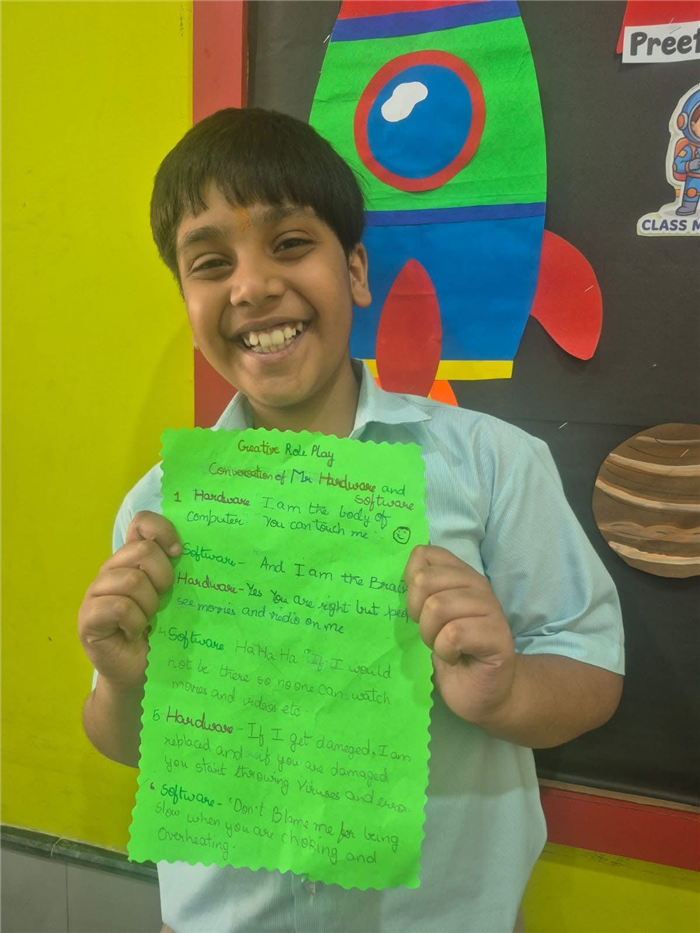 Preet
CLASS M
Creative Role Play
Conversation of Mr Hardware and
Software
1 Hardware "I am the body of
computer You can touch me".
Software - And I am the Brain
Hardware - Yes You are right but peo
see movies and viedio on me
4. Software Ha Ha Ha "If I would
not be there so no one can watch
movies and videos etc.
5 Hardware - If I get damaged, I am
replaced and if you are damaged
you start throwing viruses and erro
6 Software - "Don't Blame me for being
slow when you are choking and
overheating.